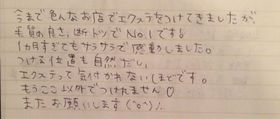 今まで色んなお店でエクステをつけてきましたが、
毛質の良さ、断トツでNo.1です!
1ヵ月すぎてもサラサラで感動しました。
つける位置も自然だし、
エクステって気付かれないほどです。
もうここ以外でつけれません♡
またお願いします(°o°)/.